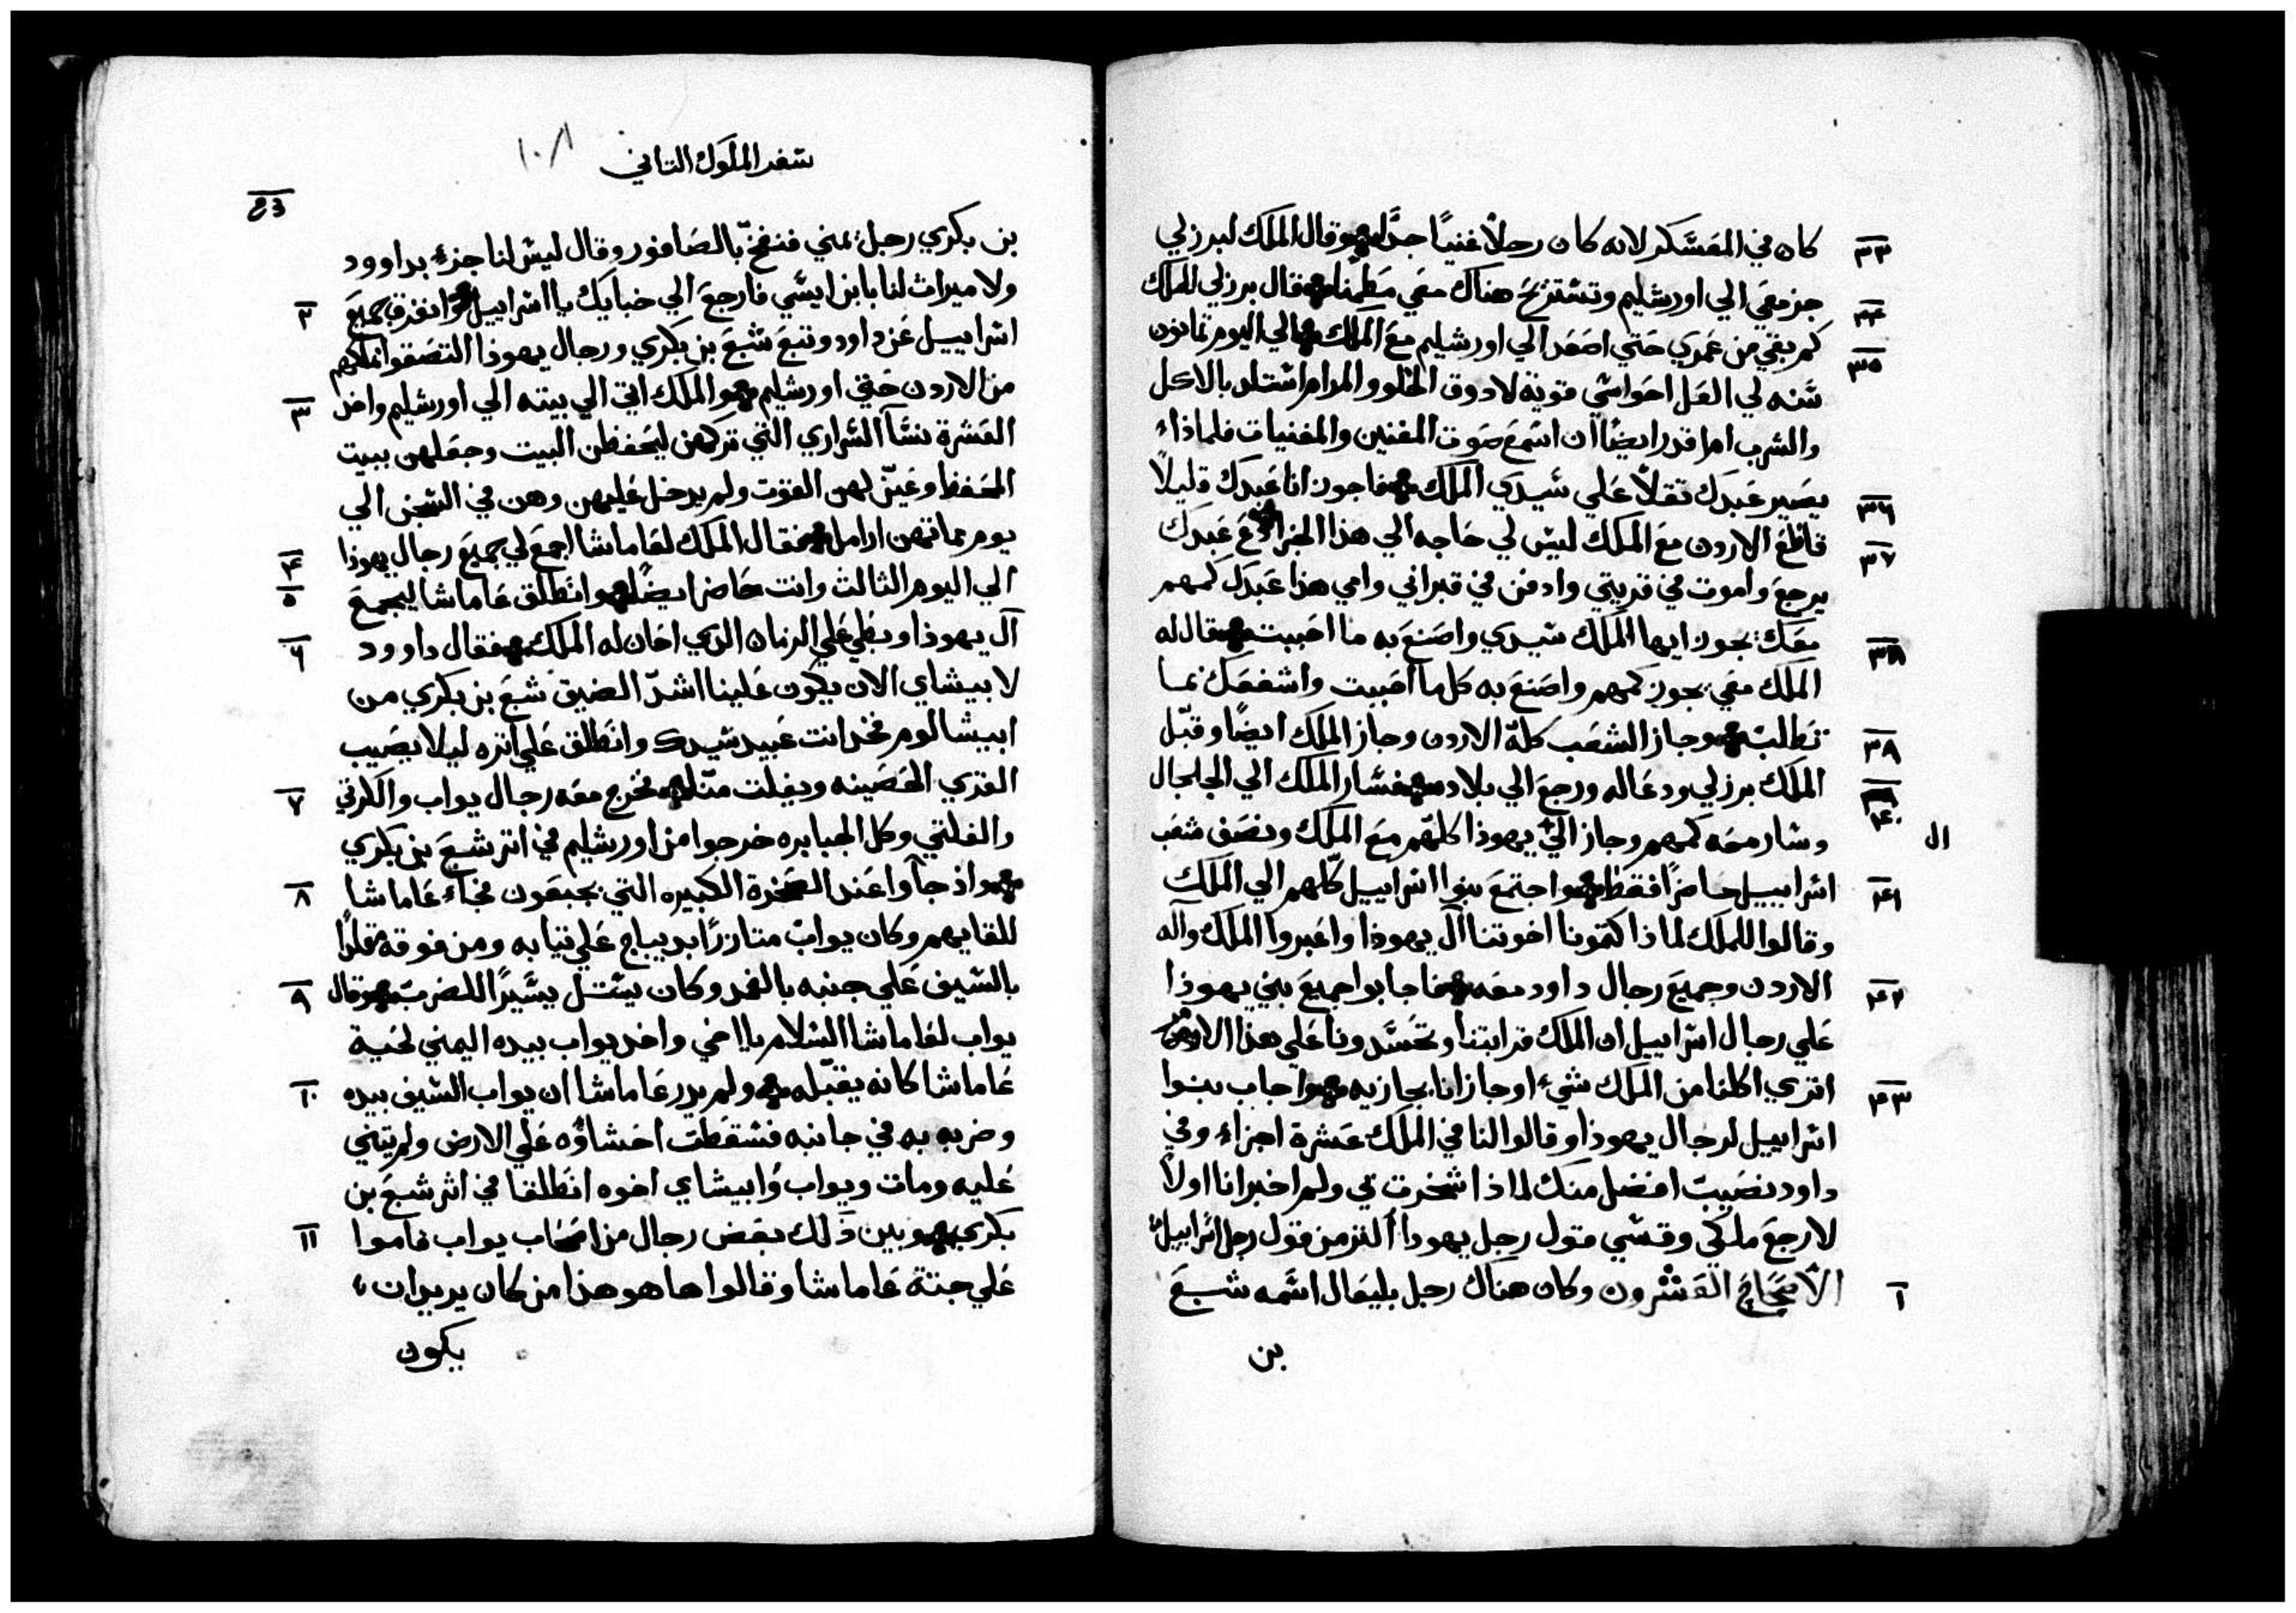 ٣٣ كان في المعسكر لانه كان رجلاً غنياً جداً وقال الملك لبرزلي
٣٤ جز معي الي اورشليم وتستريح هناك معي مطمئنا فقال برزلي للملك
٣٥ كم بقي من عمري حتي اصعد الي اورشليم مع الملك الي اليوم ثمانون
سنه لي العل احواسي قوية لادوق الحلو والمر ام استلد بالاكل
والشرب ام اقدر ايضاً ان اسمع صوت المغنين والمغنيات فلماذاء
٣٦ يصير عبدك ثقلاً علي سيدي الملك فاجوز انا عبدك قليلاً
٣٧ فاقطع الاردن مع الملك ليس لي حاجه الي هذا الجزا دع عبدك
يرجع واموت في قريتي وادفن في قبر ابي وامي هذا عبدك كمهم
٣٨ معك يجوز ايها الملك سيدي واصنع به ما احببت فقال له
الملك معي يجوز كمهم واصنع به كل ما احببت واشفعك بما
٣٨ تطلب وجاز الشعب كله الاردن وجاز الملك ايضاً وقبل
الملك برزلي ودعا له ورجع الي بلاده فسار الملك الي الجلجال
٤٠ وسار معه كمهم وجاز الي يهوذا كلهم مع الملك ونصف شعب
ال
٤١ اسراييل حاضراً فقط واجتمع بنوا اسراييل كلهم الي الملك
وقالوا للملك لماذا كتمونا اخوتنا آل يهوذا واعبروا الملك وآله
٤٢ الاردن وجميع رجال داود معه فاجابوا جميع بني يهوذا
علي رجال اسراييل ان الملك قرابتنا وتحسدونا علي هذا الامر
٤٣ اتري اكلنا من الملك شيء او جازانا بجازيه واجاب بنوا
اسراييل لرجال يهوذا وقالوا لنا في الملك عشرة اجزاء وفي
داود نصيب افضل منك لماذا سخرت بي ولم اخبر انا اولاً
لارجع ملكي وقسي قول رجل يهودا الذ من قول رجل اسراييل
١ الاصحاح العشرون وكان هناك رجل بليعال اسمه شبع
بن
سفر الملوك التاني ١٠٨
بن بكري رجل يمني فنفخ بالصافور وقال ليس لنا جزء بداوود
٢ ولا ميراث لنا بابن ايسي فارجع الي خبايك يا اسراييل وانفرق جميع
اسراييل عن داود وتبع شبع بن بكري ورجال يهوذا التصقوا بملكهم
٣ من الاردن حتي اورشليم والملك اتي الي بيته الي اورشليم واخد
العشرة نسآ السراري التي تركهن ليحفظن البيت وجعلهن ببيت
المحفظ وعين لهن القوت ولم يدخل عليهن وهن في السجن الي
٤ يوم مماتهن ارامل فقال الملك لعاماشا اجمع لي جميع رجال يهوذا
٥ الي اليوم الثالث وانت حاضر ايضاً وانطلق عاماشا ليجمع
٦ آل يهوذا وبطي علي الزمان الذي احان له الملك فقال داوود
لابيشاي الان يكون علينا اشد الضيق شبع بن بكري من
ابيشالوم فخد انت عبيد سيدك وانطلق علي اثره ليلا يصيب
٧ القري الحصينه ويفلت منا فخرج معه رجال يواب والكرتي
والفلتي وكل الجبابره خرجوا من اورشليم في اتر شبع بن بكري
٨ واذ جآوا عند الصخرة الكبيره التي بجبعون فجاء عاماشا
للقايهم وكان يواب متازراً بديباج علي تيابه ومن فوقه مقلداً
٩ بالسيف علي جنبه بالغمد وكان يستل يسيراً للضرب وقال
يواب لعاماشا السلام يا اخي واخد يواب بيده اليمني لحية
١٠ عاماشا كانه يقبله ولم يدر عاماشا ان يواب السيف بيده
وضربه به في جانبه فسقطت احشاؤه علي الارض ولم يثني
عليه ومات ويواب وابيشاي اخوه انطلقا في اثر شبع بن
١١ بكري وبين ذلك بعض رجال من اصحاب يواب قاموا
علي جتة عاماشا وقالوا ها هو هذا من كان يريد ان
يكون